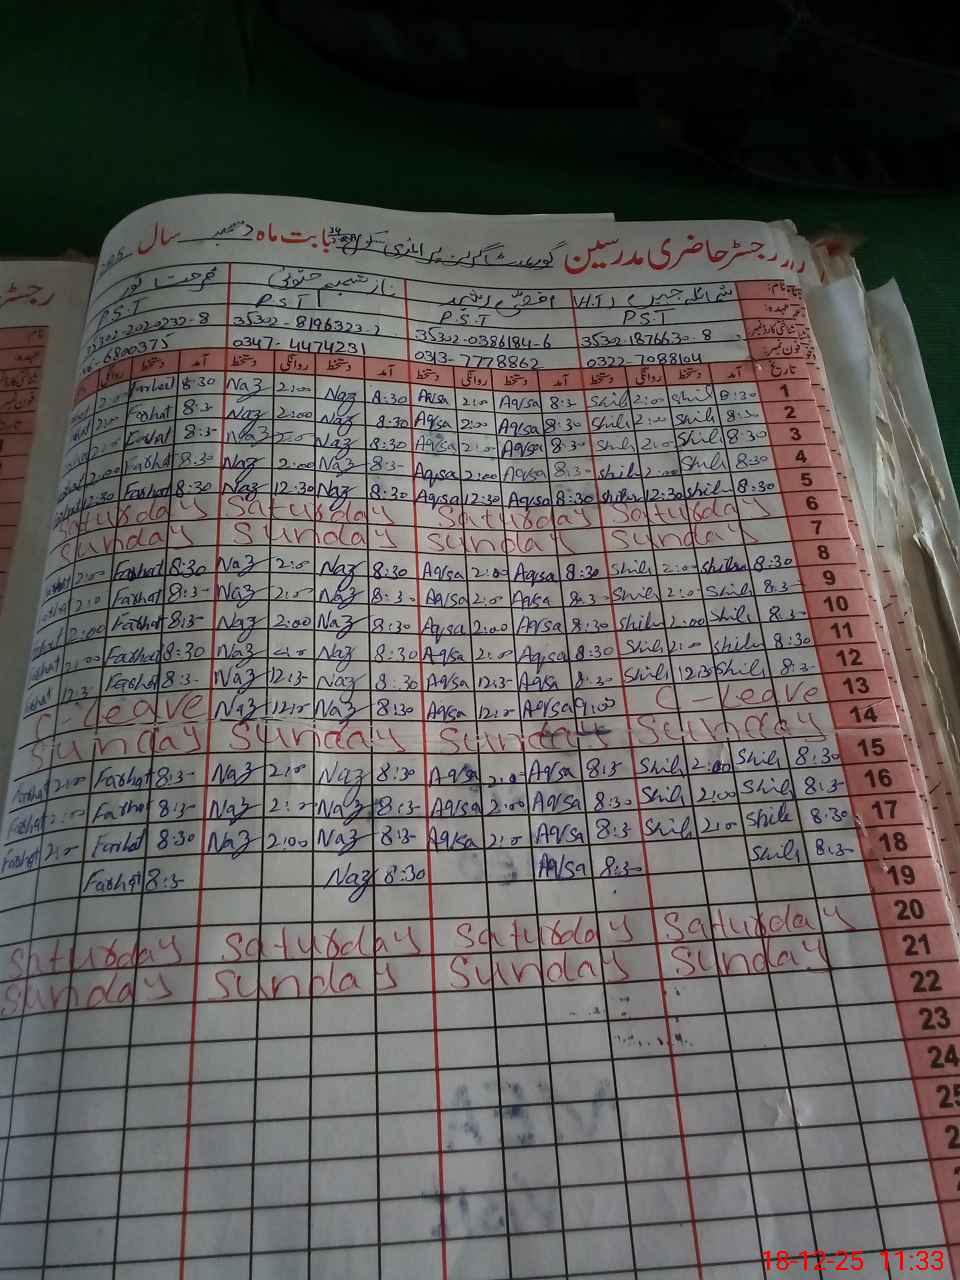 رجسٹر حاضری مدرسین گورنمنٹ گرلز پرائمری سکول بابت ماہ دسمبر سال
نام: شمائلہ H.T اقصیٰ رشید ناز فرحت نور
عہدہ: P.S.T P.S.T P.S.T P.S.T
شناختی کارڈ نمبر: 35302-1876630-8 35302-0386184-6 35302-8196323-2 35302-2020232-8
فون نمبر: 0322-7088104 0313-7778862 0347-4474231 6800375
تاریخ آمد دستخط روانگی دستخط آمد دستخط روانگی دستخط آمد دستخط روانگی دستخط آمد دستخط روانگی
2:00 Farhat 8:30 Naz 2:00 Naz 8:30 Aqsa 2:0 Aqsa 8:3- Shil 2:00 Shil 8:30 1
2:00 Farhat 8:3- Naz 2:00 Naz 8:30 Aqsa 2:00 Aqsa 8:30 Shil 2:00 Shil 8:30 2
2:0 Farhat 8:3- Naz 2:0 Naz 8:30 Aqsa 2:0 Aqsa 8:30 Shil 2:0 Shil 8:30 3
2:00 Farhat 8:30 Naz 2:00 Naz 8:3- Aqsa 2:00 Aqsa 8:3- Shil 2:00 Shil 8:30 4
12:30 Farhat 8:30 Naz 12:30 Naz 8:30 Aqsa 12:30 Aqsa 8:30 Shil 12:30 Shil 8:30 5
Saturday Saturday Saturday Saturday 6
Sunday Sunday Sunday Sunday 7
2:00 Farhat 8:30 Naz 2:0 Naz 8:30 Aqsa 2:00 Aqsa 8:30 Shil 2:0 Shil 8:30 8
2:0 Farhat 8:3- Naz 2:0 Naz 8:30 Aqsa 2:0 Aqsa 8:3- Shil 2:0 Shil 8:3- 9
2:00 Farhat 8:3- Naz 2:00 Naz 8:30 Aqsa 2:00 Aqsa 8:30 Shil 2:00 Shil 8:3- 10
Farhat 2:00 Farhat 8:30 Naz 2:0 Naz 8:30 Aqsa 2:0 Aqsa 8:30 Shil 2:0 Shil 8:30 11
12:3- Farhat 8:3- Naz 12:3- Naz 8:30 Aqsa 12:3- Aqsa 8:30 Shil 12:3 Shil 8:3- 12
C-Leave Naz 12:0 Naz 8:30 Aqsa 12:0 Aqsa 9:00 C-Leave 13
Sunday Sunday Sunday Sunday 14
Farhat 2:00 Farhat 8:3- Naz 2:0 Naz 8:30 Aqsa 2:0 Aqsa 8:3- Shil 2:00 Shil 8:30 15
Farhat 2:00 Farhat 8:3- Naz 2:0 Naz 8:3- Aqsa 2:00 Aqsa 8:30 Shil 2:00 Shil 8:3- 16
Farhat 2:0 Farhat 8:30 Naz 2:00 Naz 8:3- Aqsa 2:0 Aqsa 8:3- Shil 2:0 Shil 8:30 17
Farhat 8:3- Naz 8:30 Aqsa 8:3- Shil 8:3- 18
19
Saturday Saturday Saturday Saturday 20
Sunday Sunday Sunday Sunday 21
22
23
24
25
18-12-25 11:33